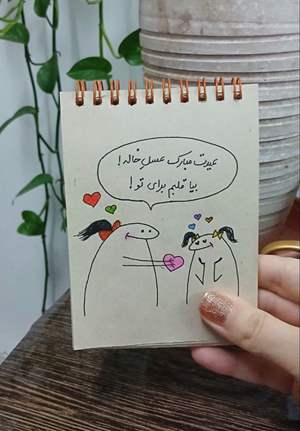 عیدت مبارک عسل خاله!
بیا قلبم برای تو!